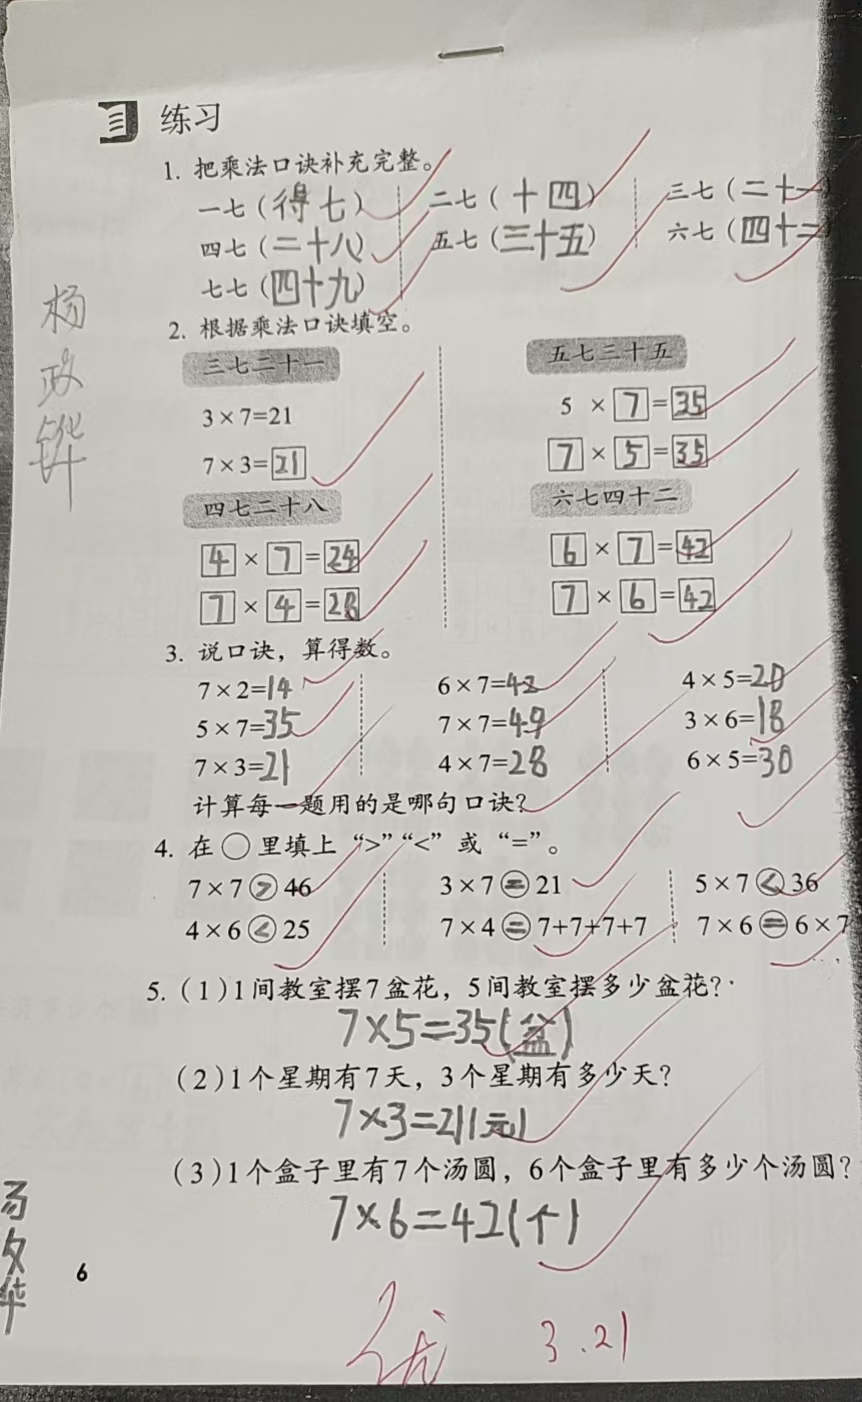 练习
1. 把乘法口诀补充完整。
一七(得七) 二七(十四) 三七(二十一)
四七(二十八) 五七(三十五) 六七(四十二)
七七(四十九)
2. 根据乘法口诀填空。
三七二十一 五七三十五
3×7=21 5×7=35
7×3=21 7×5=35
四七二十八 六七四十二
4×7=24 6×7=42
7×4=28 7×6=42
3. 说口诀，算得数。
7×2=14 6×7=42 4×5=20
5×7=35 7×7=49 3×6=18
7×3=21 4×7=28 6×5=30
计算每一题用的是哪句口诀?
4. 在○里填上“>”“<”或“=”。
7×7>46 3×7=21 5×7<36
4×6<25 7×4=7+7+7+7 7×6=6×7
5.(1)1间教室摆7盆花，5间教室摆多少盆花?
7×5=35(盆)
(2)1个星期有7天，3个星期有多少天?
7×3=21(元)
(3)1个盒子里有7个汤圆，6个盒子里有多少个汤圆?
7×6=42(个)
杨政
6
优 3.21